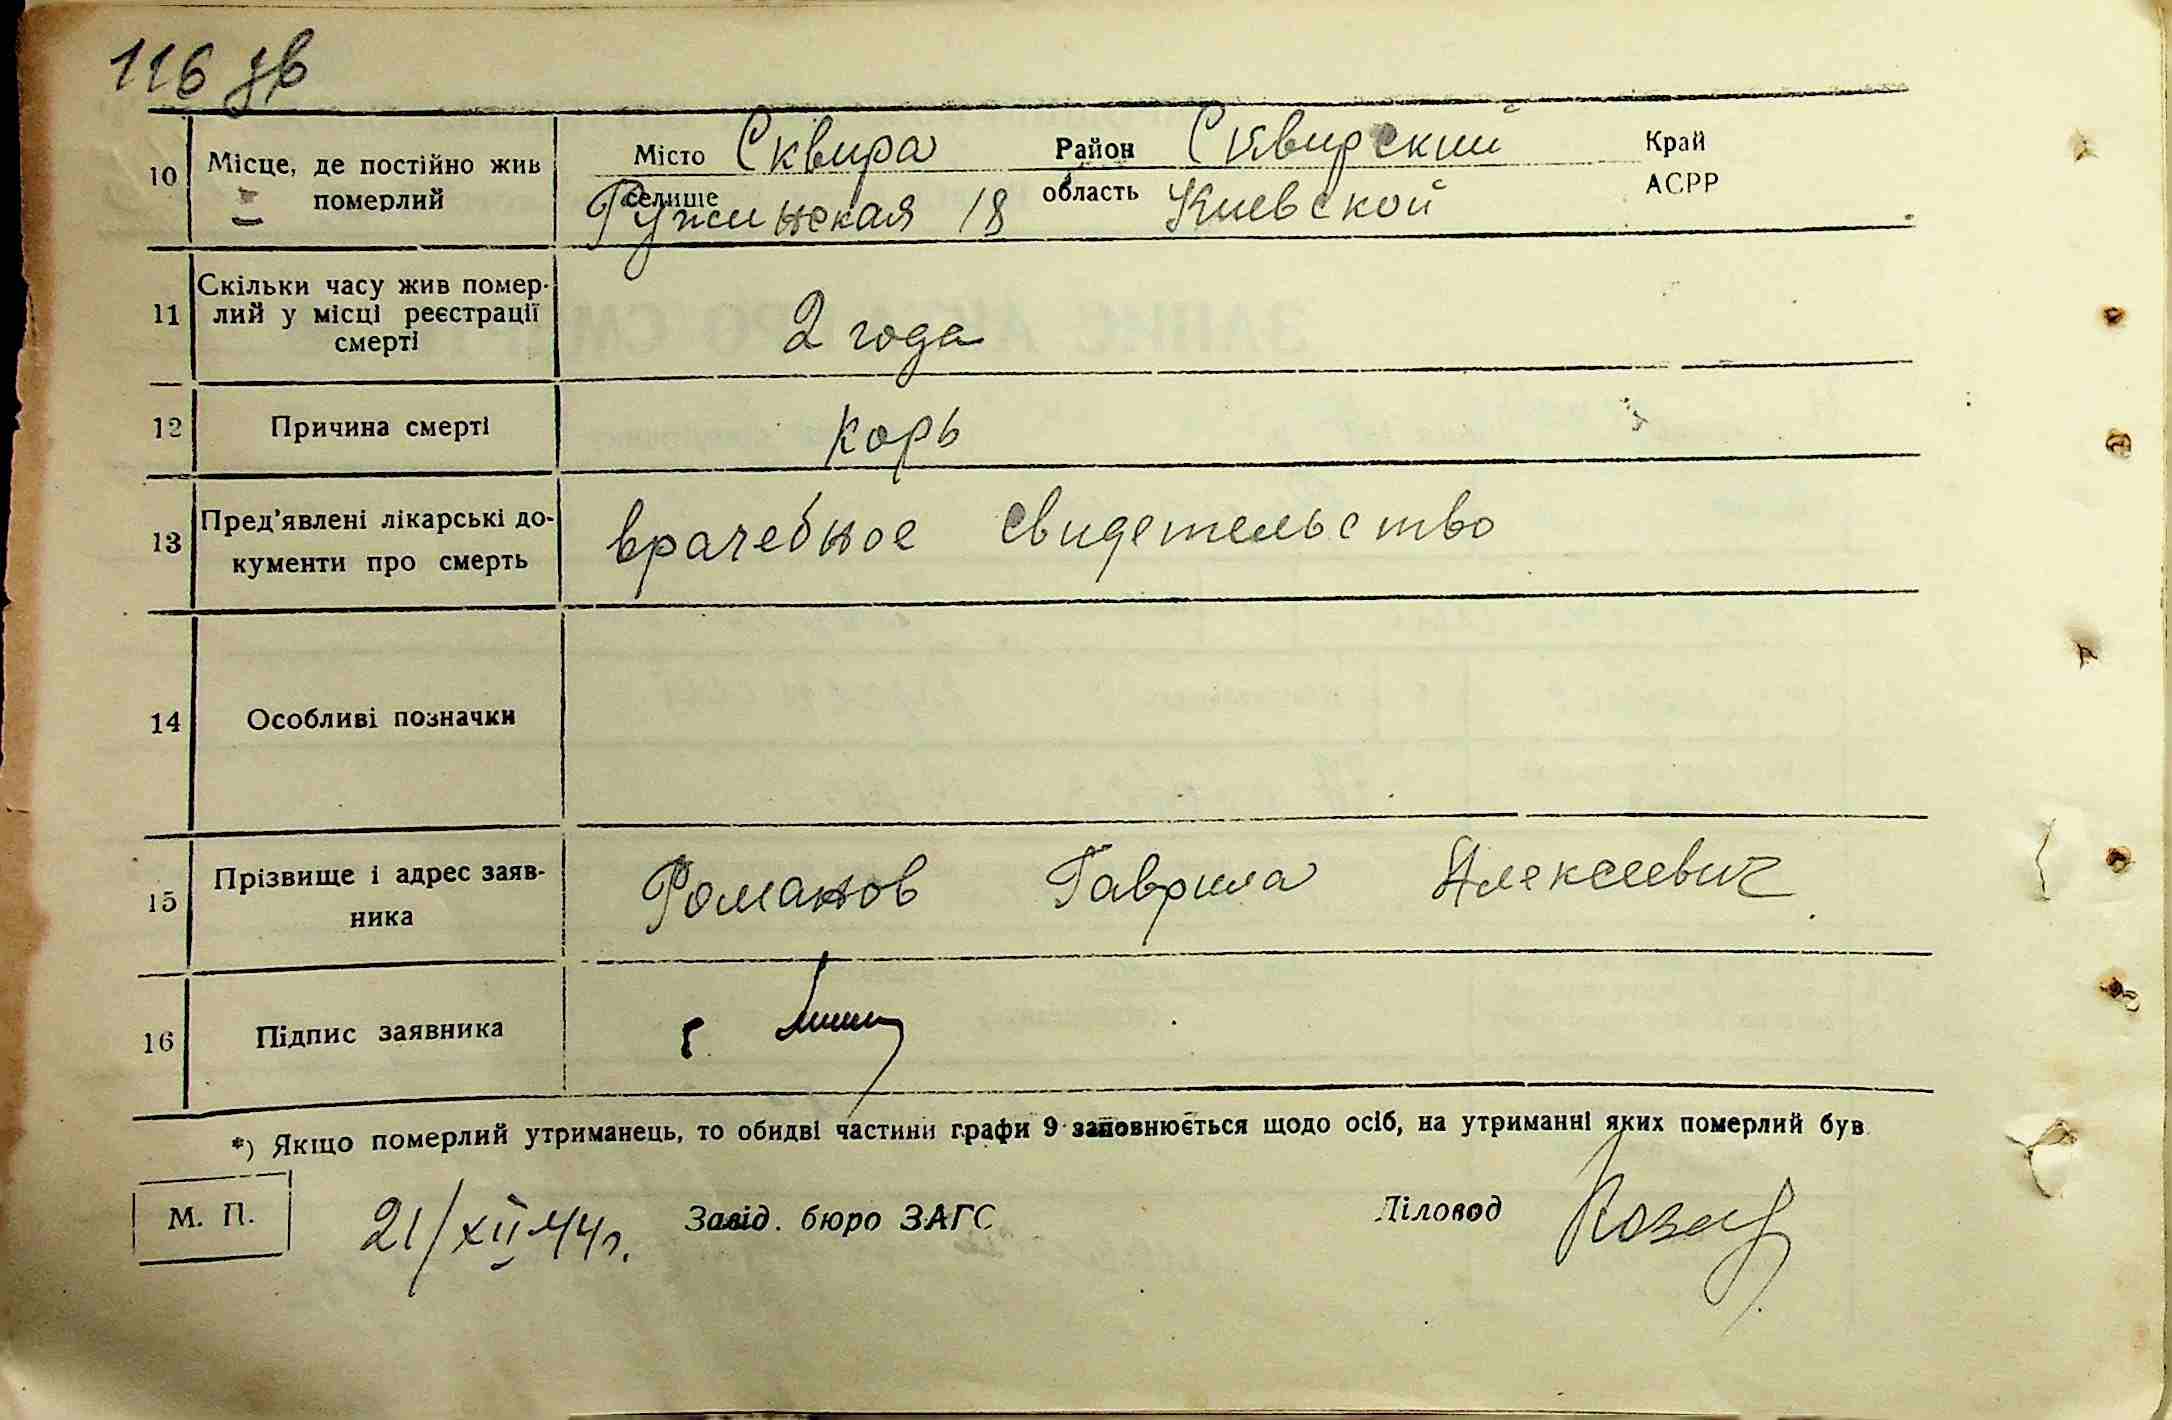 116 зв
10 Місце, де постійно жив померлий
Місто Сквира Район Сквирский Край
селище Ружинская 18 область Киевской АСРР
11 Скільки часу жив помер-
лий у місці реєстрації
смерті
2 года
12 Причина смерті
корь
13 Пред'явлені лікарські до-
кументи про смерть
врачебное свидетельство
14 Особливі позначки
15 Прізвище і адрес заяв-
ника
Романов Гаврила Алексеевич
16 Підпис заявника
*) Якщо померлий утриманець, то обидві частини графи 9 заповнюється щодо осіб, на утриманні яких померлий був
М. П. 21/XII 44 г. Завід. бюро ЗАГС Діловод